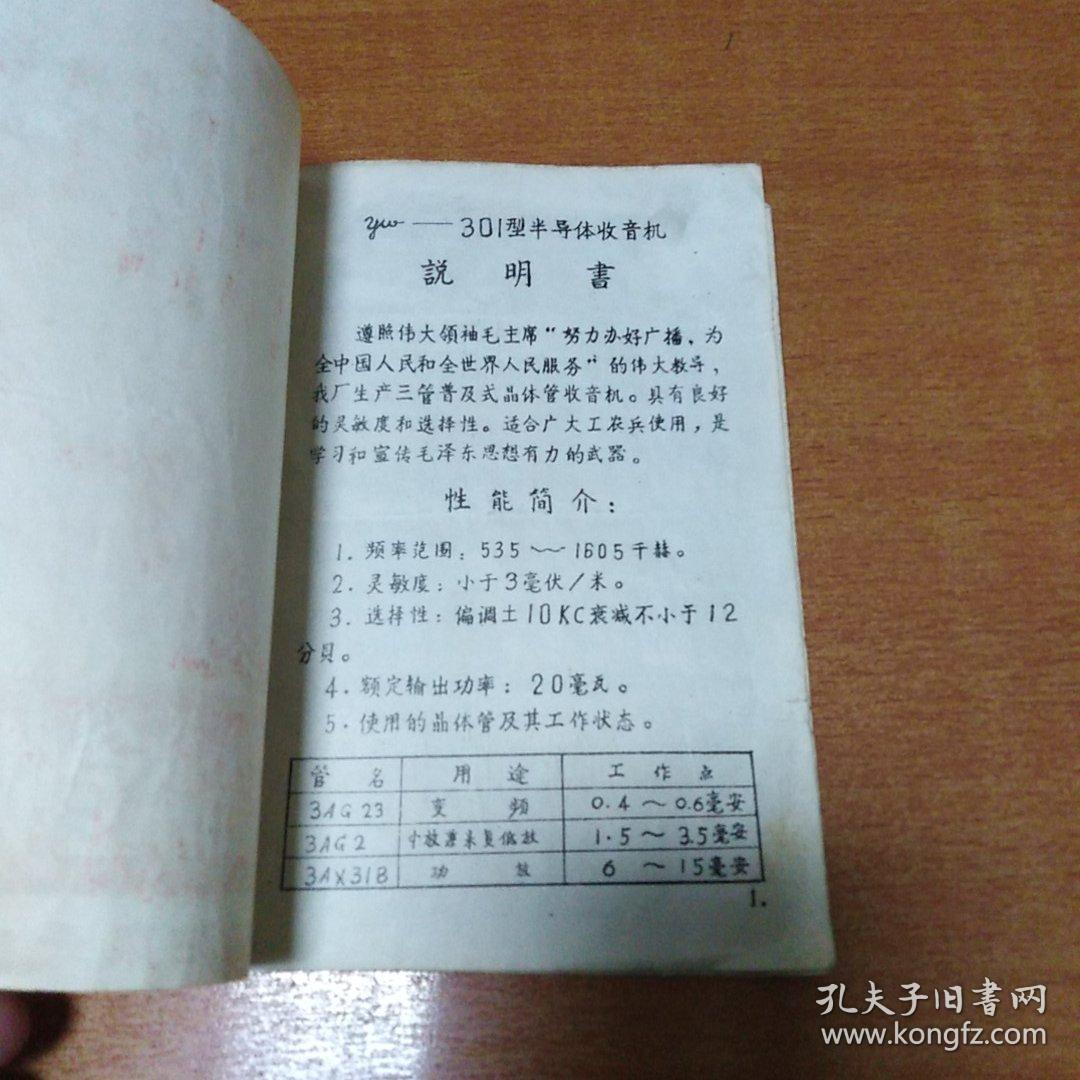 yw——301型半导体收音机
説明書
遵照伟大领袖毛主席“努力办好广播,为
全中国人民和全世界人民服务”的伟大教导,
我厂生产三管普及式晶体管收音机。具有良好
的灵敏度和选择性。适合广大工农兵使用,是
学习和宣传毛泽东思想有力的武器。
性能简介:
1.频率范围:535~1605千赫。
2.灵敏度:小于3毫伏/米。
3.选择性:偏调±10KC衰减不小于12
分贝。
4.额定输出功率:20毫瓦。
5.使用的晶体管及其工作状态。
管名 用途 工作点
3AG23 变频 0.4~0.6毫安
3AG2 中放兼来复低放 1.5~3.5毫安
3AX31B 功放 6~15毫安
1.
孔夫子旧書网
www.kongfz.com